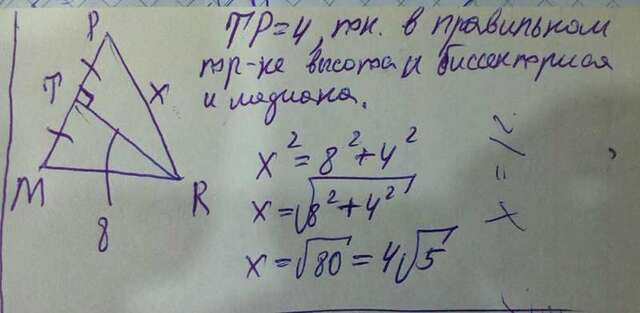 P
T
x
M
R
8
TP=4, т.к. в правильном
тр-ке высота и биссектриса
и медиана.
x² = 8² + 4²
x = √(8² + 4²)
x = √80 = 4√5